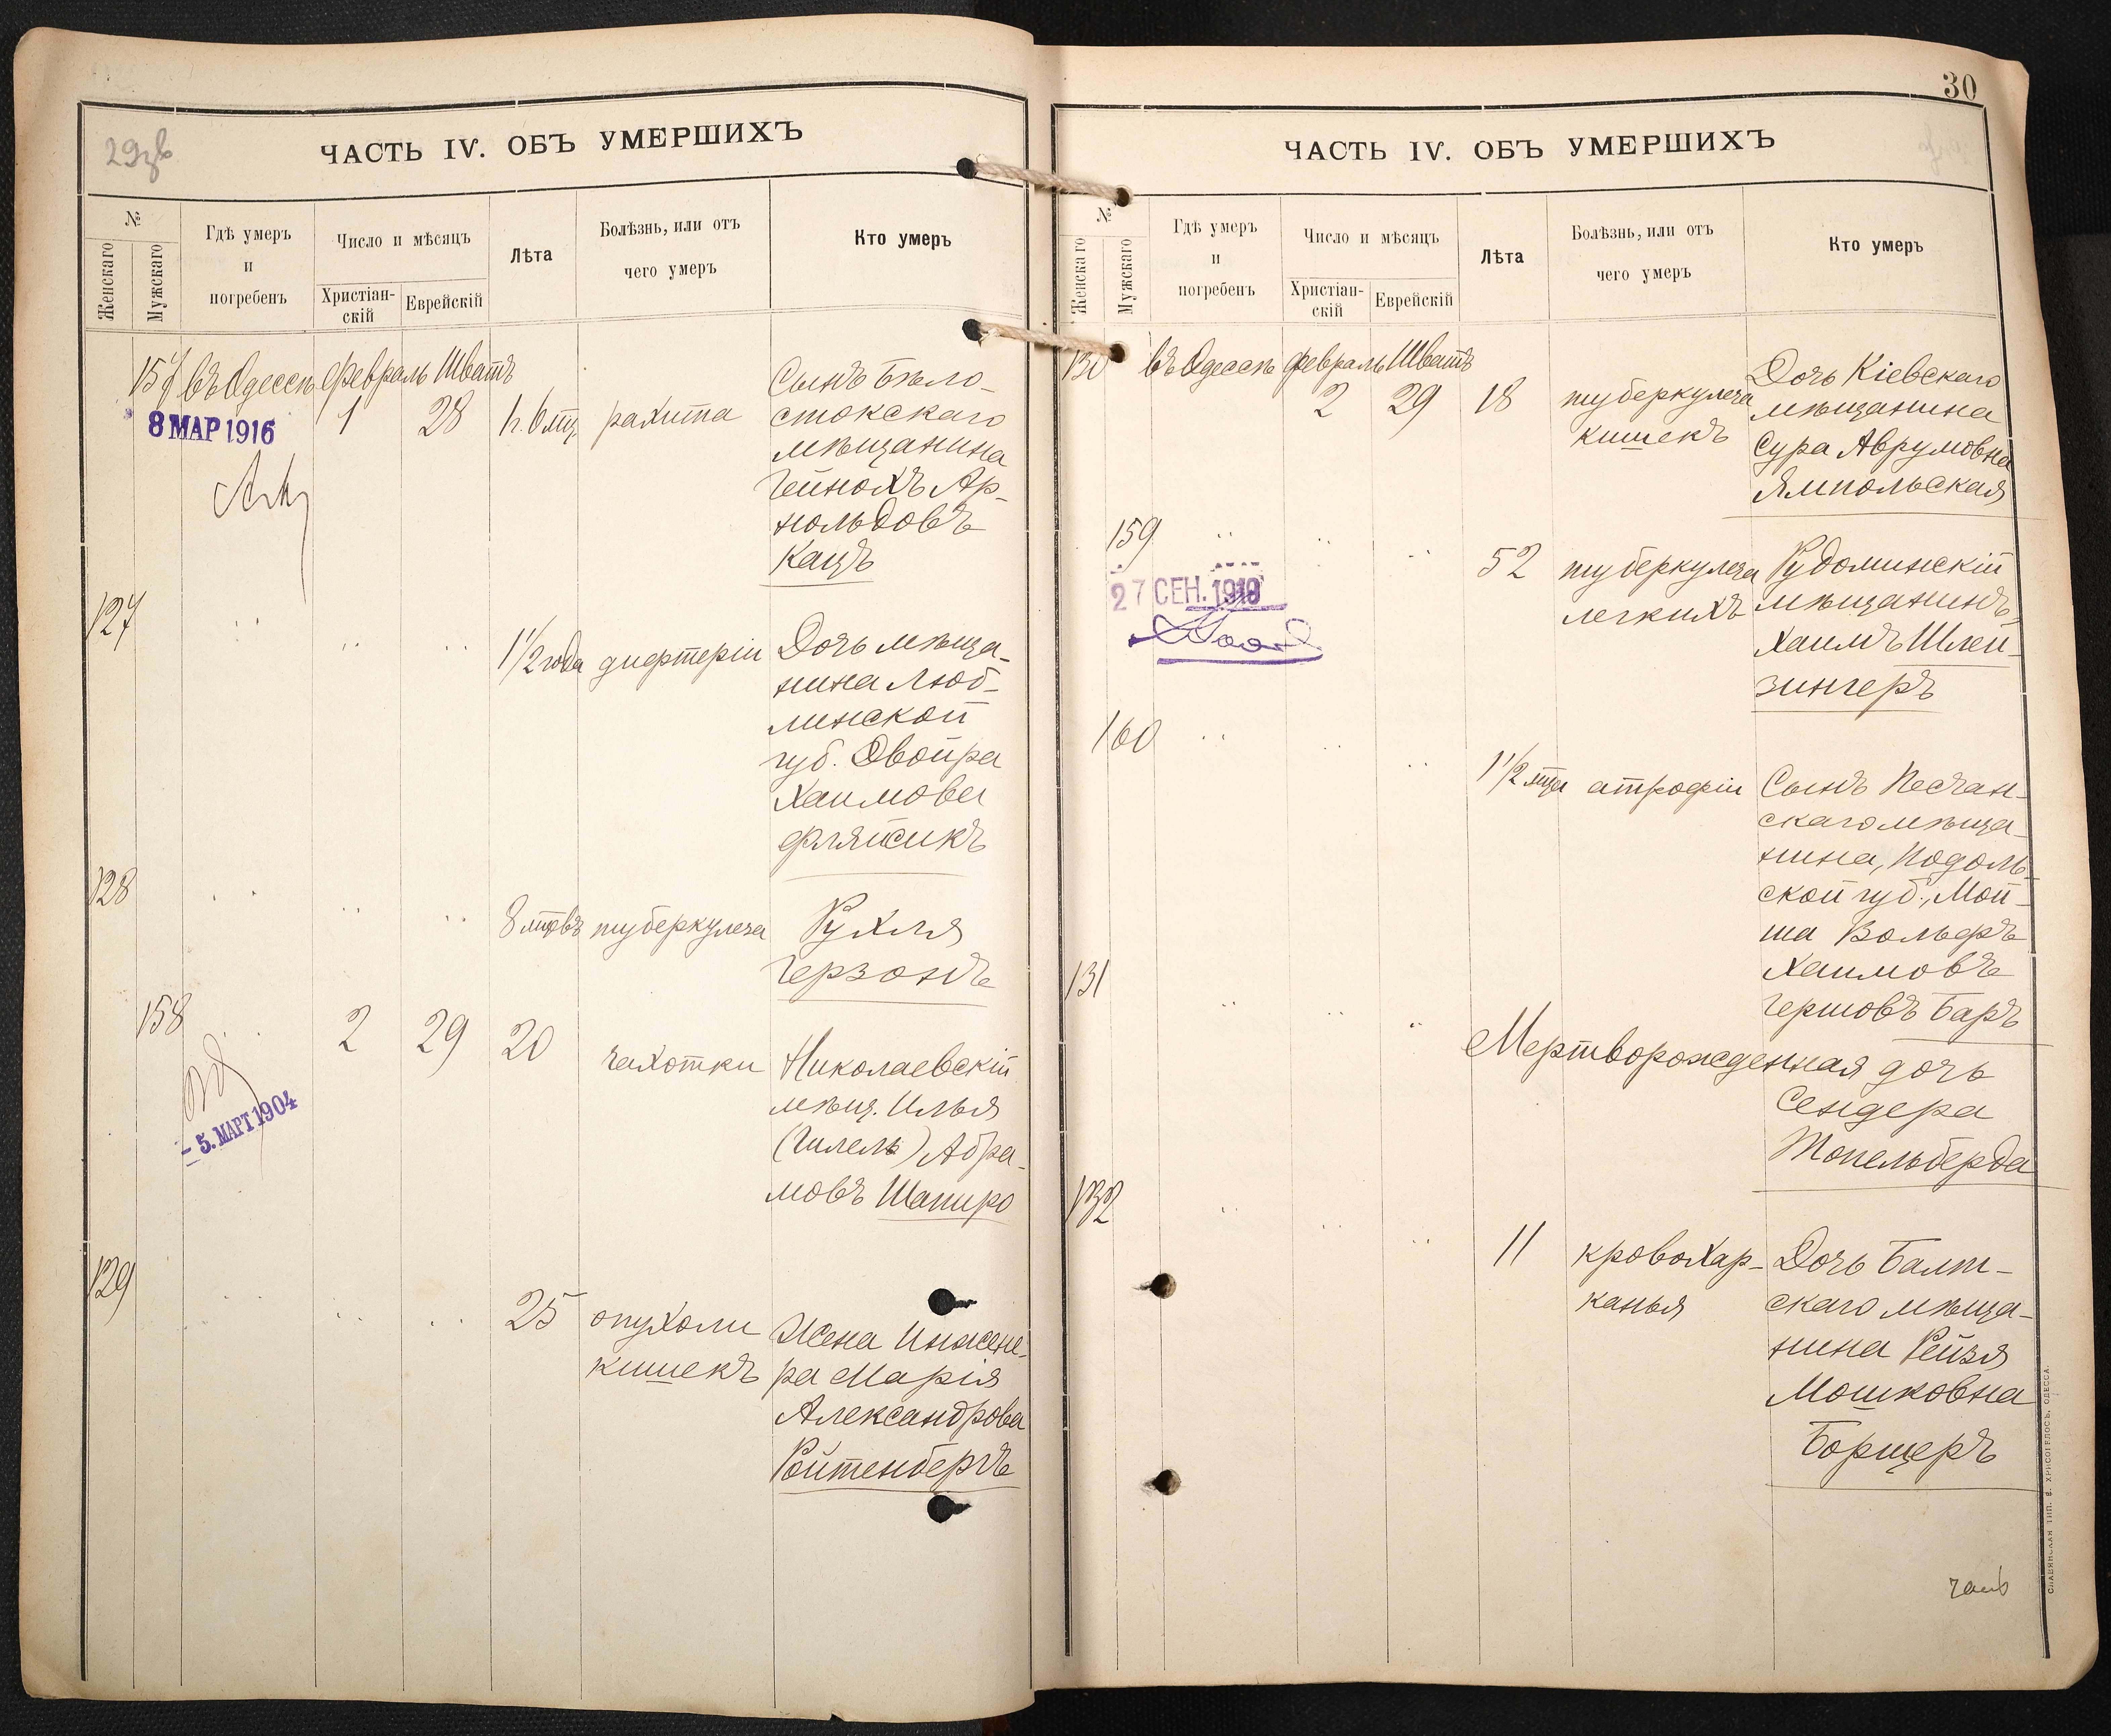 29
ЧАСТЬ IV. ОБЪ УМЕРШИХЪ
№
Женскаго
Мужскаго
Гдѣ умеръ
и
погребенъ
Число и мѣсяцъ
Христіан-
скій
Еврейскій
Лѣта
Болѣзнь, или отъ
чего умеръ
Кто умеръ
157 въ Одессѣ Февраль Шватъ
8 МАР 1916
1 28 рахита
Сынъ Бѣло-
стокскаго
мѣщанина
Гейнохъ Ар-
нольдовъ
Кацъ
127 1 1/2 года дифтеріи
Дочь мѣща-
нина Люб-
линской
губ. Двойра
Хаимова
Фляйсикъ
128 8 мцвъ туберкулеза
Рухля
Герзонъ
158 2 29 20 чахотки
- 5. МАРТ 1904
Николаевскій
мѣщ. Илья
(Гилель) Абра-
мовъ Шапиро
129 25 опухоли
кишекъ
Жена Инжене-
ра Марія
Александрова
Ройтенбергъ
30
ЧАСТЬ IV. ОБЪ УМЕРШИХЪ
№
Женскаго
Мужскаго
Гдѣ умеръ
и
погребенъ
Число и мѣсяцъ
Христіан-
скій
Еврейскій
Лѣта
Болѣзнь, или отъ
чего умеръ
Кто умеръ
130 въ Одессѣ Февраль Шватъ
2 29 18 туберкулеза
кишекъ
Дочь Кіевскаго
мѣщанина
Сура Аврумовна
Ямпольская
159 52 туберкулеза
легкихъ
27 СЕН. 1910
Рудоминскій
мѣщанинъ
Хаимъ Шлей-
зингеръ
160 1 1/2 мца атрофіи
Сынъ Песчан-
скаго мѣща-
нина, Подоль-
ской губ., Мой-
ша Вольфъ
Хаимовъ
Гершовъ Баръ
131 Мертворожденная дочь
Сендера
Топельберга
132 11 кровохар-
канья
Дочь Балт-
скаго мѣща-
нина Рейзя
Мошковна
Борщеръ
СЛАВЯНСКАЯ ТИП. Е. ХРИСОГЕЛОСЪ, ОДЕССА.